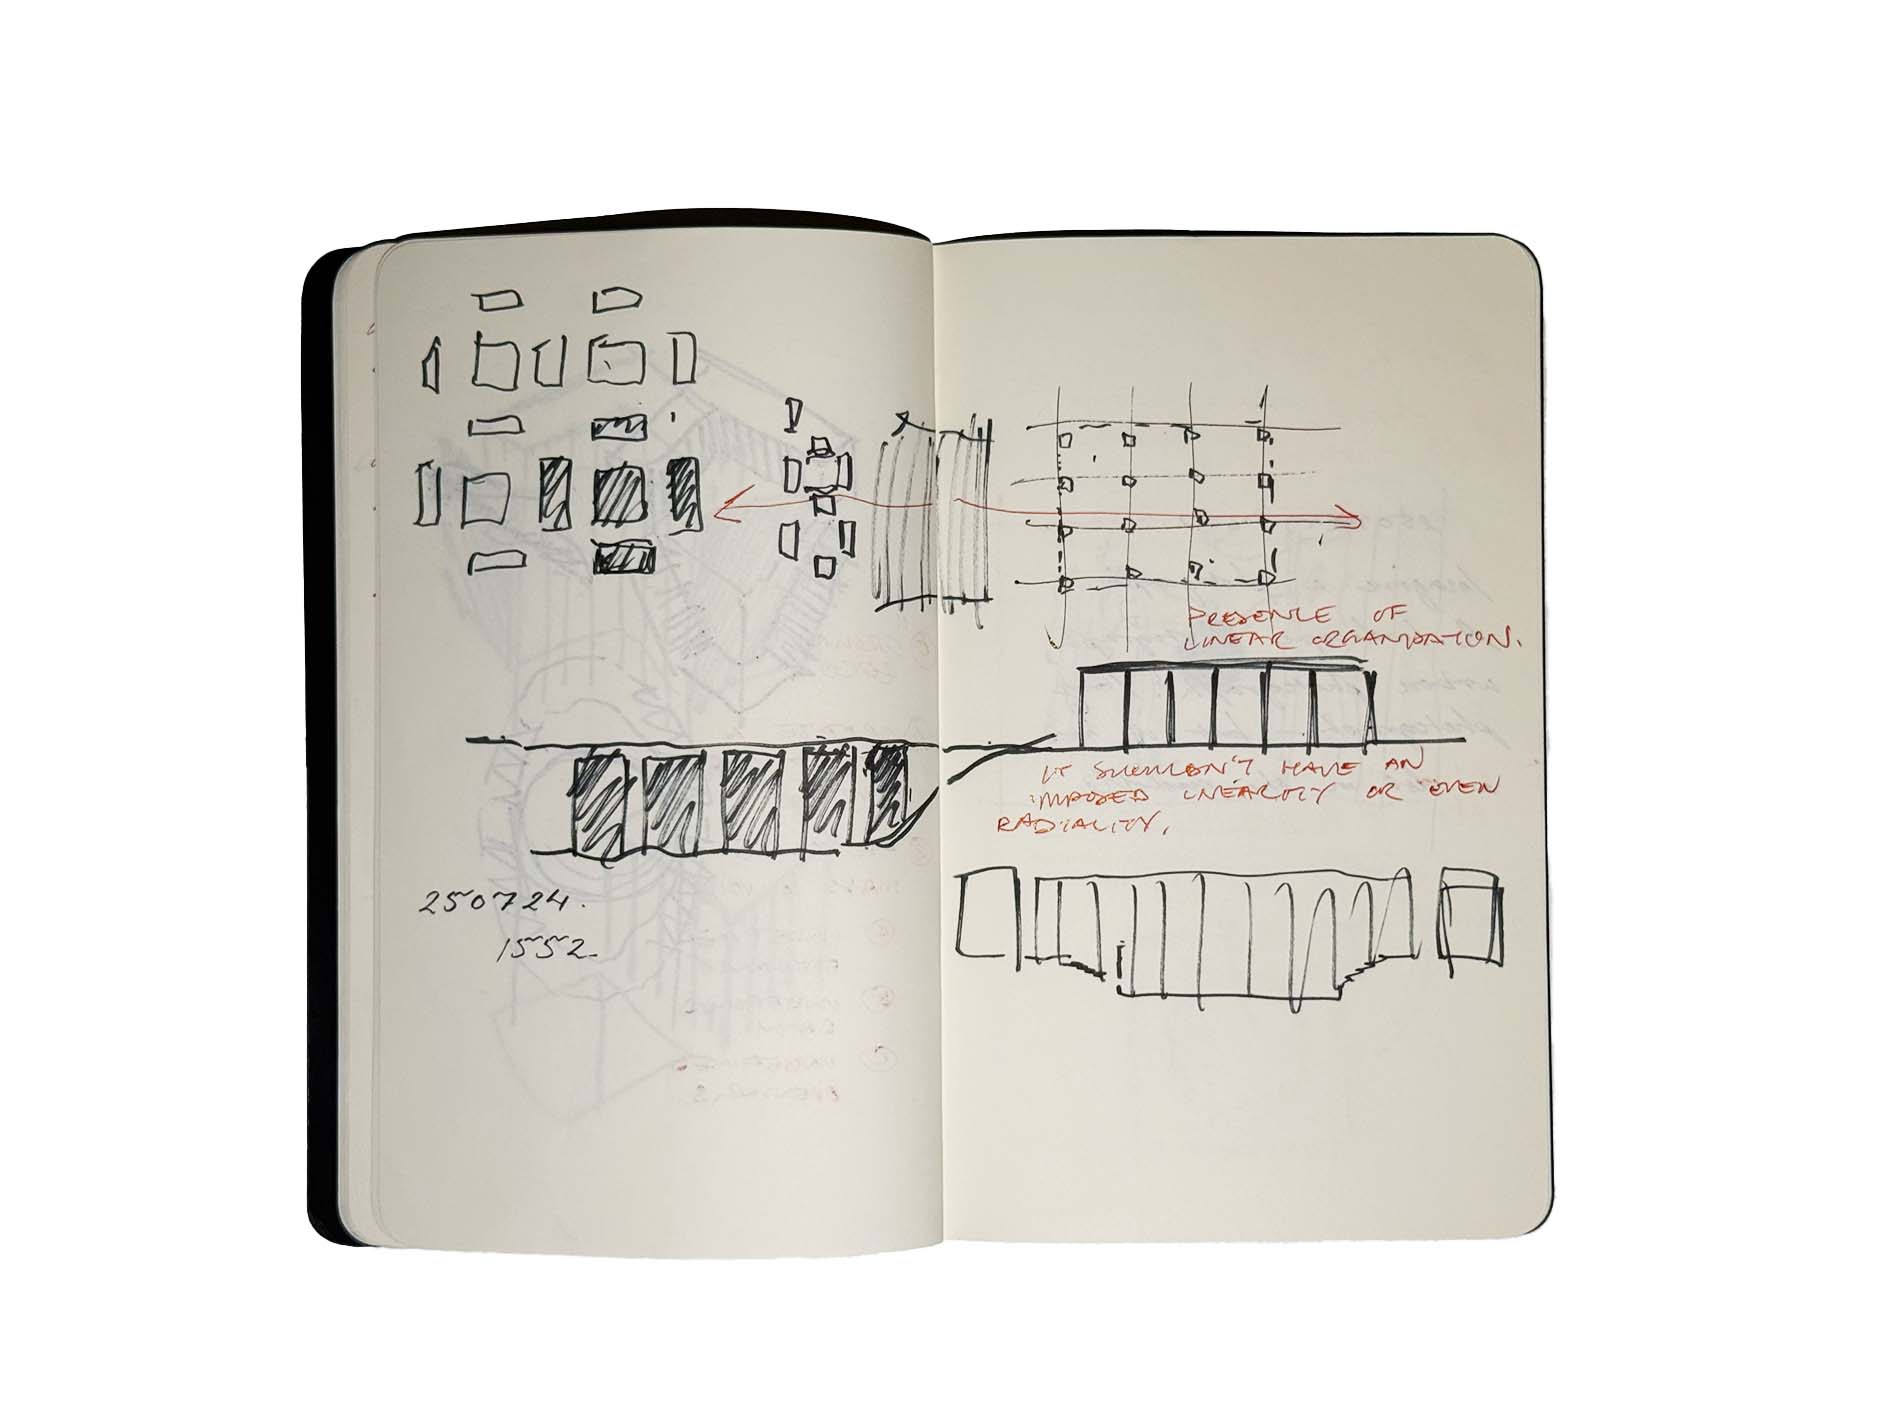 250724.
1552.
PRESENCE OF
LINEAR ORGANISATION.
IT SHOULDN'T HAVE AN
IMPOSED LINEARITY OR EVEN
RADIALITY.